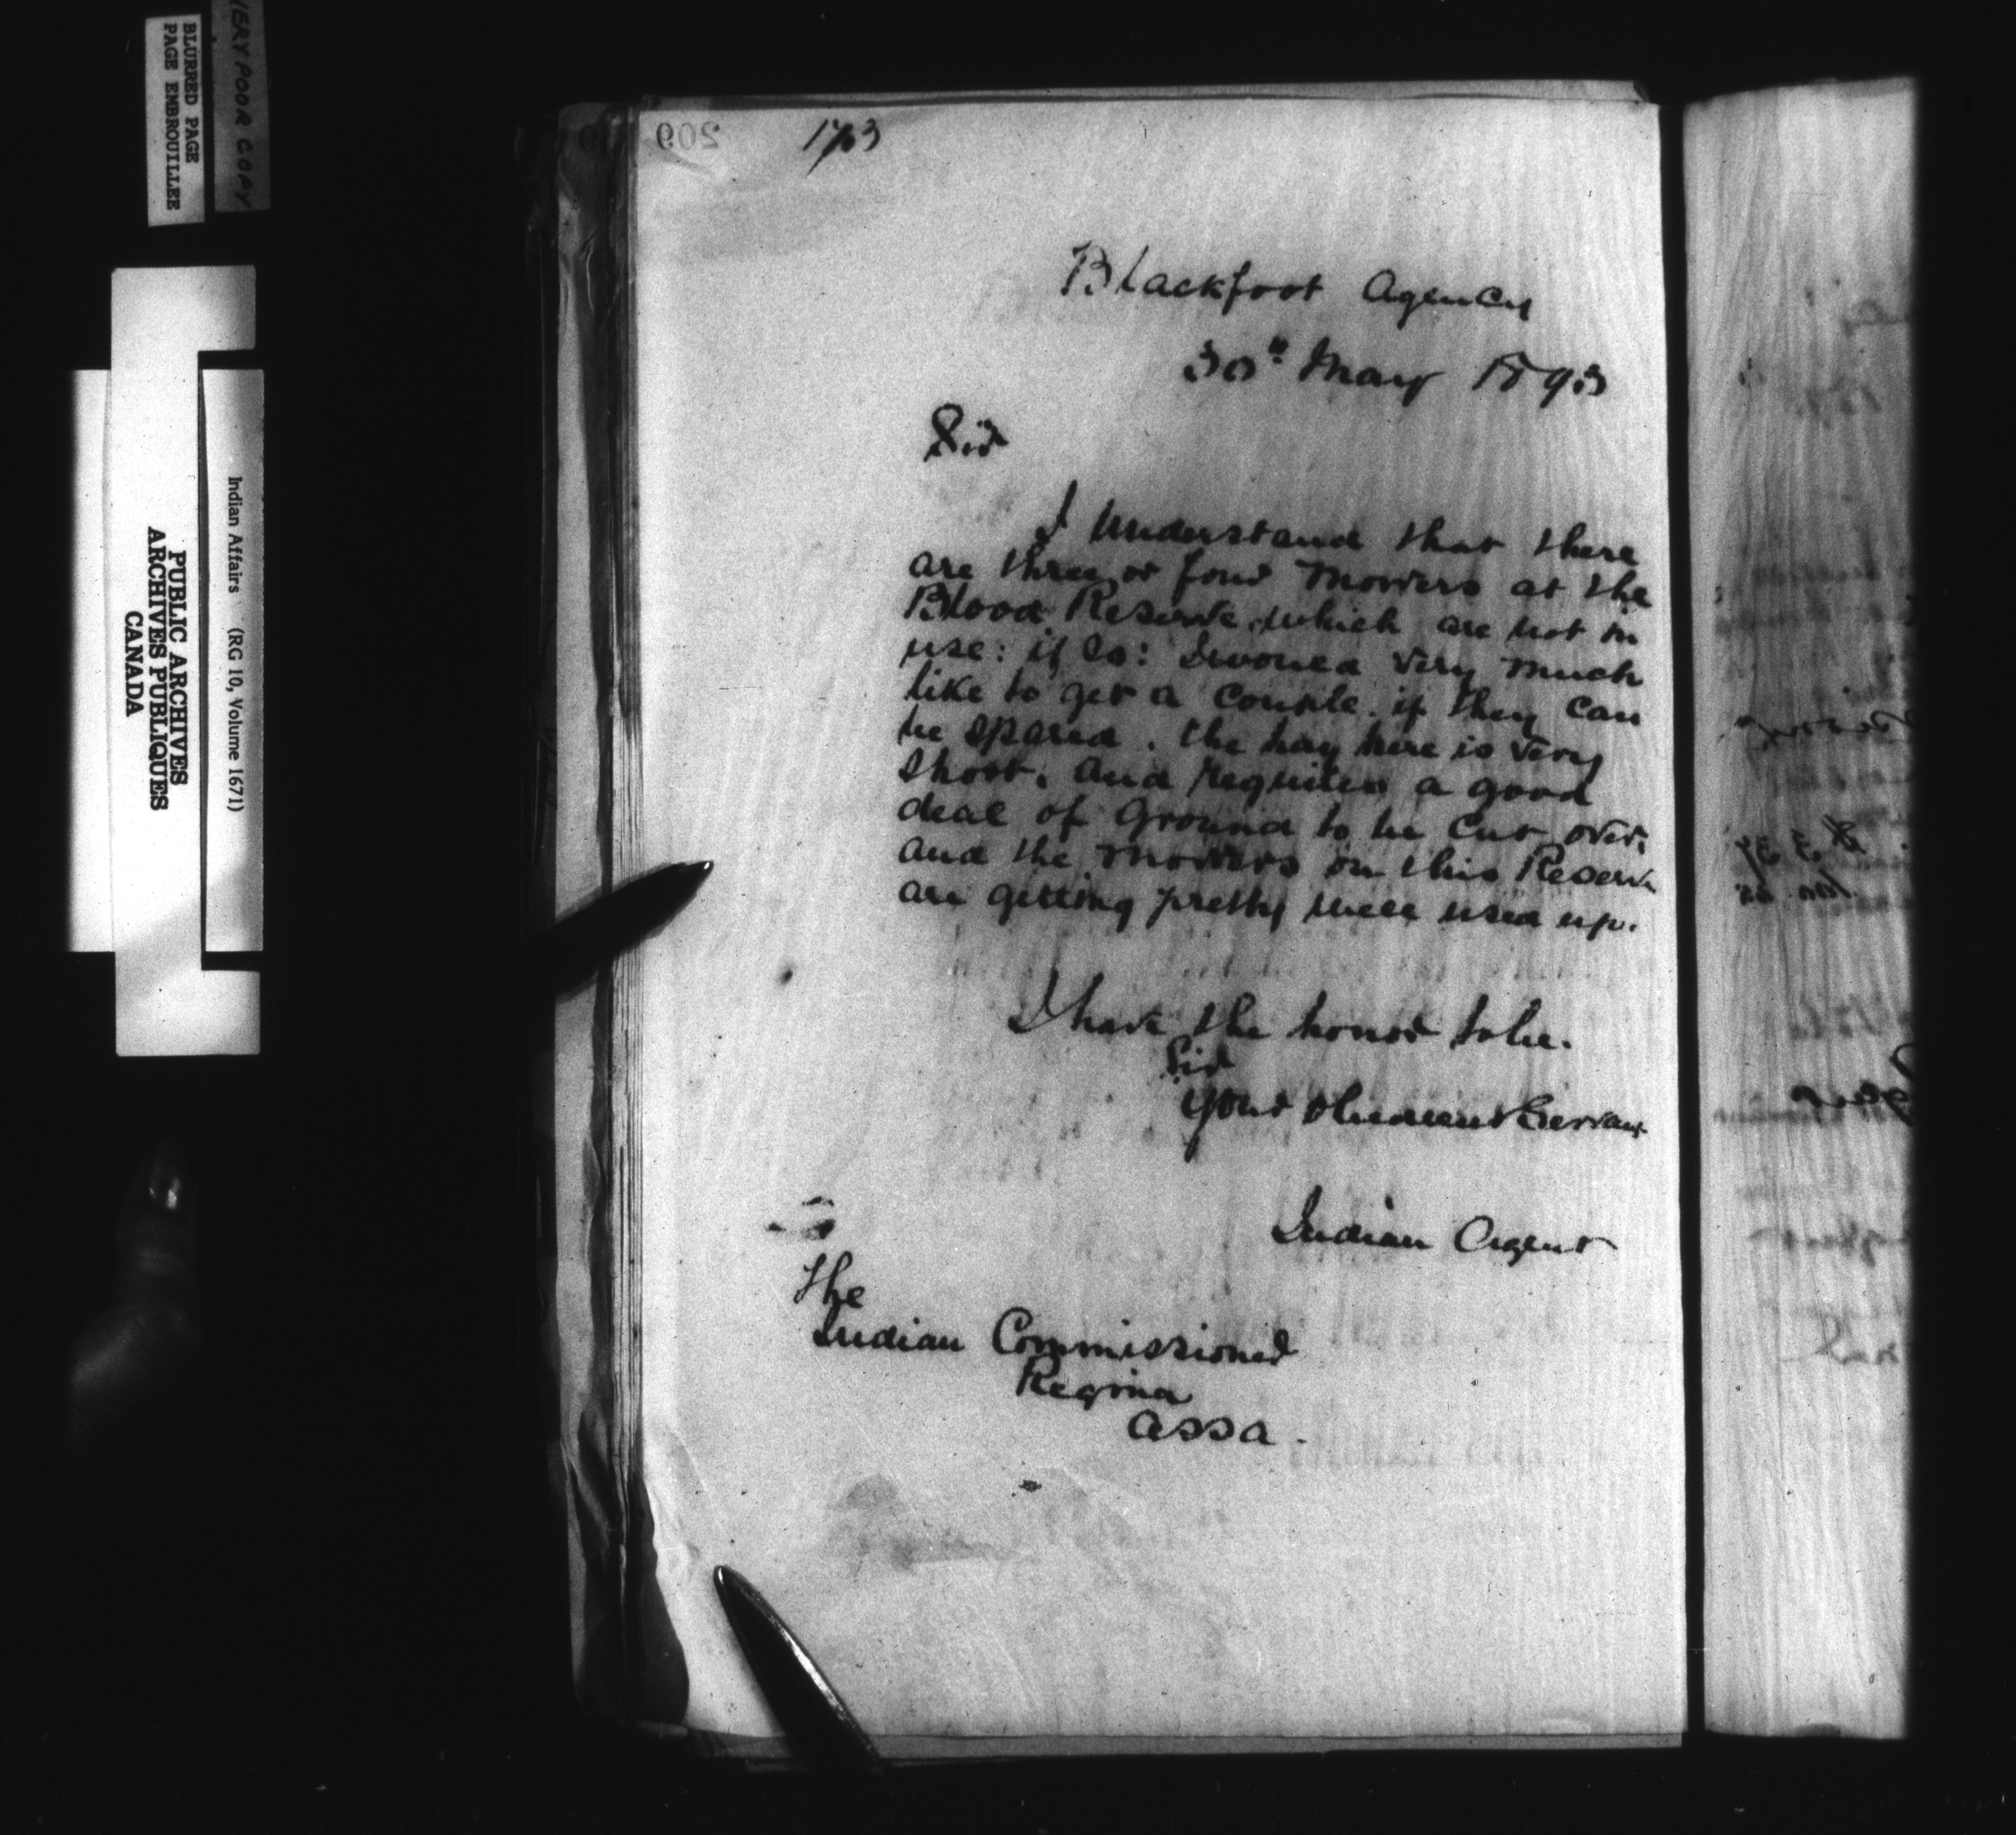 VERY POOR COPY
BLURRED PAGE
PAGE EMBROUILLEE
PUBLIC ARCHIVES
ARCHIVES PUBLIQUES
CANADA
Indian Affairs (RG 10, Volume 1671)
209
Blackfoot Agency
30th May 1893
Sir
I understand that there
are three or four mowers at the
Blood Reserve, which are not in
use: if so: I would very much
like to get a couple. if they can
be spared. the hay here is very
short, and requires a good
deal of Ground to be cut over,
and the mowers on this Reserve
are getting pretty well used up.
I have the honor to be.
Sir
Your obedient Servant
Indian Agent
The
Indian Commissioner
Regina
Assa.